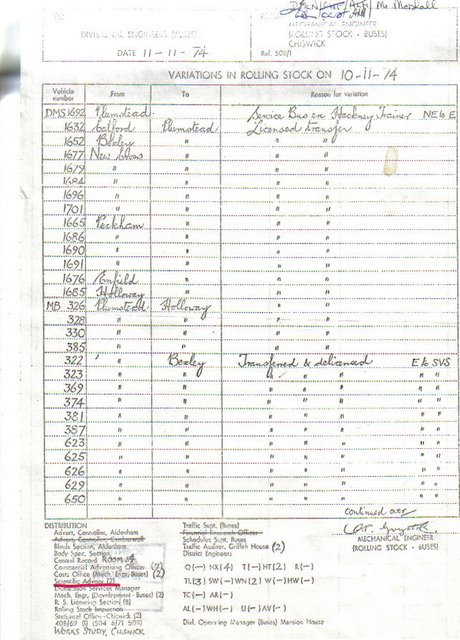 DIVISIONAL ENGINEER (BUSES)
DATE 11-11-74
Mr Marshall
MECHANICAL ENGINEER
(ROLLING STOCK - BUSES)
CHISWICK
Ref. 508/1
VARIATIONS IN ROLLING STOCK ON 10-11-74
Vehicle number From To Reason for variation
DMS 1692 Plumstead Service Bus on Hackney Trainer NE to E
1632 Catford Plumstead Licensed transfer
1652 Bexley " " "
1677 New Cross " " "
1679 " " " "
1684 " " " "
1696 " " " "
1701 " " " "
1665 Peckham " " "
1686 " " " "
1690 " " " "
1691 " " " "
1676 Enfield " " "
1685 Holloway " " "
MB 326 Plumstead Holloway " "
328 " " " "
330 " " " "
385 " " " "
322 " Bexley Transferred & delicenced E to SVS
323 " " " " " " "
369 " " " " " " "
374 " " " " " " "
381 " " " " " " "
387 " " " " " " "
623 " " " " " " "
625 " " " " " " "
626 " " " " " " "
629 " " " " " " "
650 " " " " " " "
continued over
MECHANICAL ENGINEER
(ROLLING STOCK - BUSES)
DISTRIBUTION
Advert. Controller, Aldenham
Advert. Controller, Camberwell
Blinds Section, Aldenham
Body Spec. Section
Central Record Room 4
Commercial Advertising Officer (2)
Costs Office (Mech. Engr. Buses) (2)
Scientific Adviser (2)
Distribution Services Manager
Mech. Engr. (Development - Buses) (2)
R. S. Licensing Section (8)
Rolling Stock Inspectron
Statistical Officer - Chiswick (2)
WORKS STUDY, CHISWICK
Traffic Supt. (Buses)
Financial Research Officer
Schedules Supt. Buses
Traffic Auditor, Griffith House (2)
District Engineers
Q(—) NX(4) T(—) HT(2) R(—)
TL(3) SW(—) WN(2) W(—) HW(—)
TC(—) AR(—)
AL(—) WH(—) U(—) AV(—)
Divl. Operating Manager (Buses) Mansion House